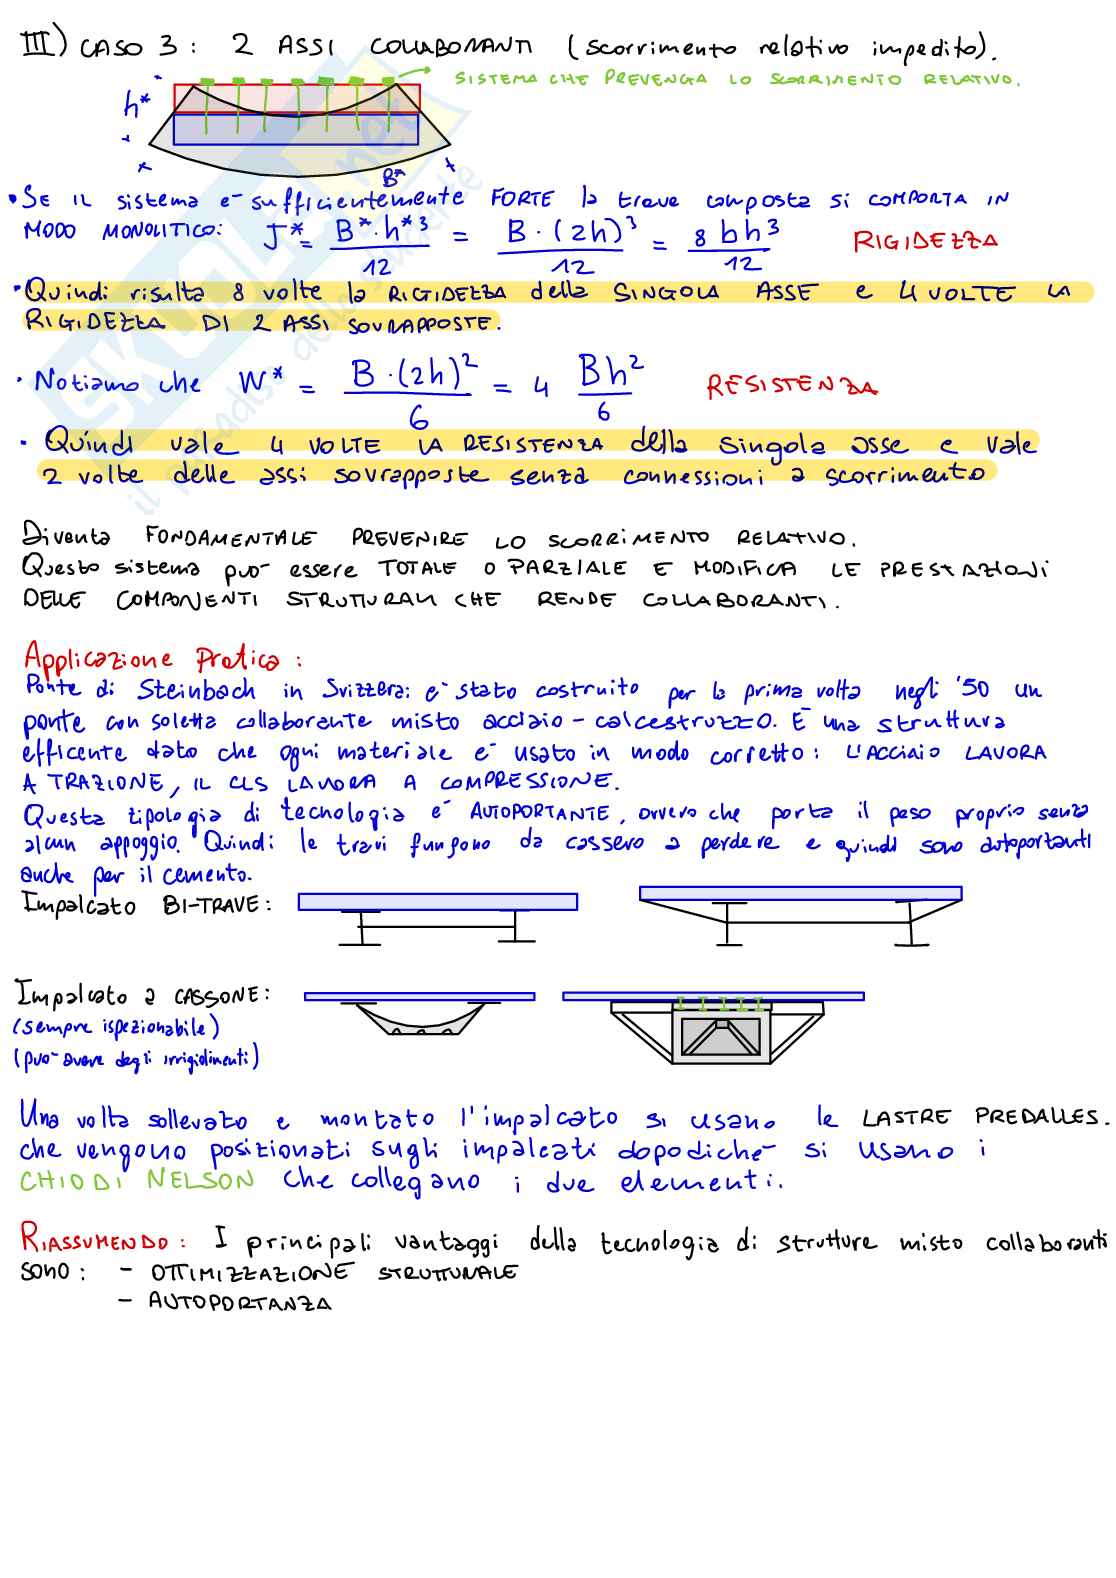 III) CASO 3: 2 ASSI COLLABORANTI (scorrimento relativo impedito).
SISTEMA CHE PREVENGA LO SCORRIMENTO RELATIVO.
h*
B*
• SE IL sistema e- sufficientemente FORTE la trave composta si COMPORTA IN
MODO MONOLITICO: J* = B*·h*³/12 = B·(2h)³/12 = 8bh³/12 RIGIDEZZA
• Quindi risulta 8 volte la RIGIDEZZA della SINGOLA ASSE e 4 VOLTE LA
RIGIDEZZA DI 2 ASSI SOVRAPPOSTE.
• Notiamo che W* = B·(2h)²/6 = 4 Bh²/6 RESISTENZA
• Quindi vale 4 VOLTE LA RESISTENZA della singola asse e vale
2 volte delle assi sovrapposte senza connessioni a scorrimento
Diventa FONDAMENTALE PREVENIRE LO SCORRIMENTO RELATIVO.
Questo sistema puo- essere TOTALE O PARZIALE E MODIFICA LE PRESTAZIONI
DELLE COMPONENTI STRUTTURALI CHE RENDE COLLABORANTI.
Applicazione Pratica:
Ponte di Steinbach in Svizzera: e- stato costruito per la prima volta negli '50 un
ponte con soletta collaborante misto acciaio-calcestruzzo. E- una struttura
efficente dato che ogni materiale e- usato in modo corretto: L'ACCIAIO LAVORA
A TRAZIONE, IL CLS LAVORA A COMPRESSIONE.
Questa tipologia di tecnologia e- AUTOPORTANTE, ovvero che porta il peso proprio senza
alcun appoggio. Quindi le travi fungono da cassero a perdere e quindi sono autoportanti
anche per il cemento.
Impalcato BI-TRAVE:
Impalcato a CASSONE:
(sempre ispezionabile)
(puo- avere degli irrigidimenti)
Una volta sollevato e montato l'impalcato si usano le LASTRE PREDALLES.
che vengono posizionati sugli impalcati dopodiche- si usano i
CHIODI NELSON che collegano i due elementi.
RIASSUMENDO: I principali vantaggi della tecnologia di strutture misto collaboranti
sono: - OTTIMIZZAZIONE STRUTTURALE
- AUTOPORTANZA
SKUOLA.net
il paradiso dello studente